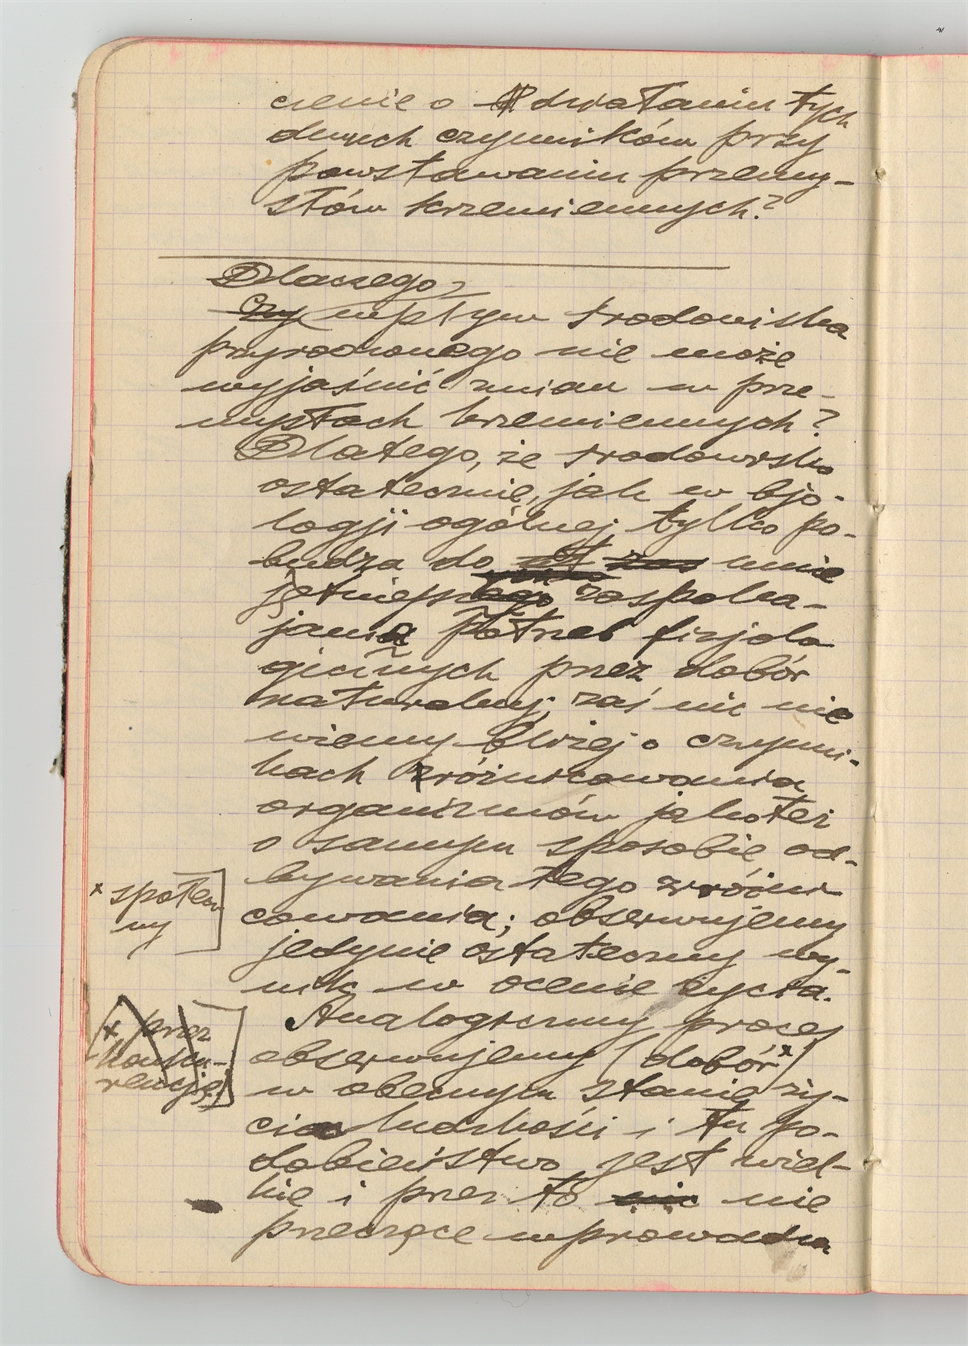 czenie o działaniu tych
dwuch czynników przy
powstawaniu przemy-
słów krzemiennych?
Dlaczego
czy wpływ środowiska
przyrodzonego nie może
wyjaśnić zmian w prze-
mysłach krzemiennych?
Dlatego, że środowisko
ostatecznie, jak w bjo-
logji ogólnej tylko po-
budza do umie
jętniejszego zaspoka-
jania potrzeb fizjolo
gicznych przez dobór
naturalny; zaś nic nie
wiemy bliżej o czynni-
kach zróżnicowania
organizmów jakoteż
o samym sposobie od-
bywania tego zróżni-
cowania; obserwujemy
jedynie ostateczny wy-
nik w ocenie życia.
Analogiczny proces
obserwujemy (dobór x)
w obecnym stanie ży-
cia ludzkości i tu po-
dobieństwo jest wiel-
kie i przez to nic nie
przeczące wprowadza
x społecz
ny
[x przez
konku-
rencję]